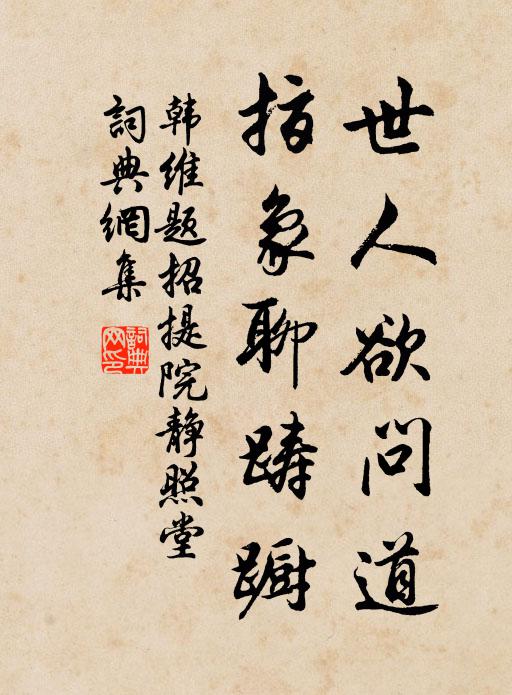 世人欲问道
指象聊踌蹰
韩维题招提院静照堂
詞典網集
詞典網印